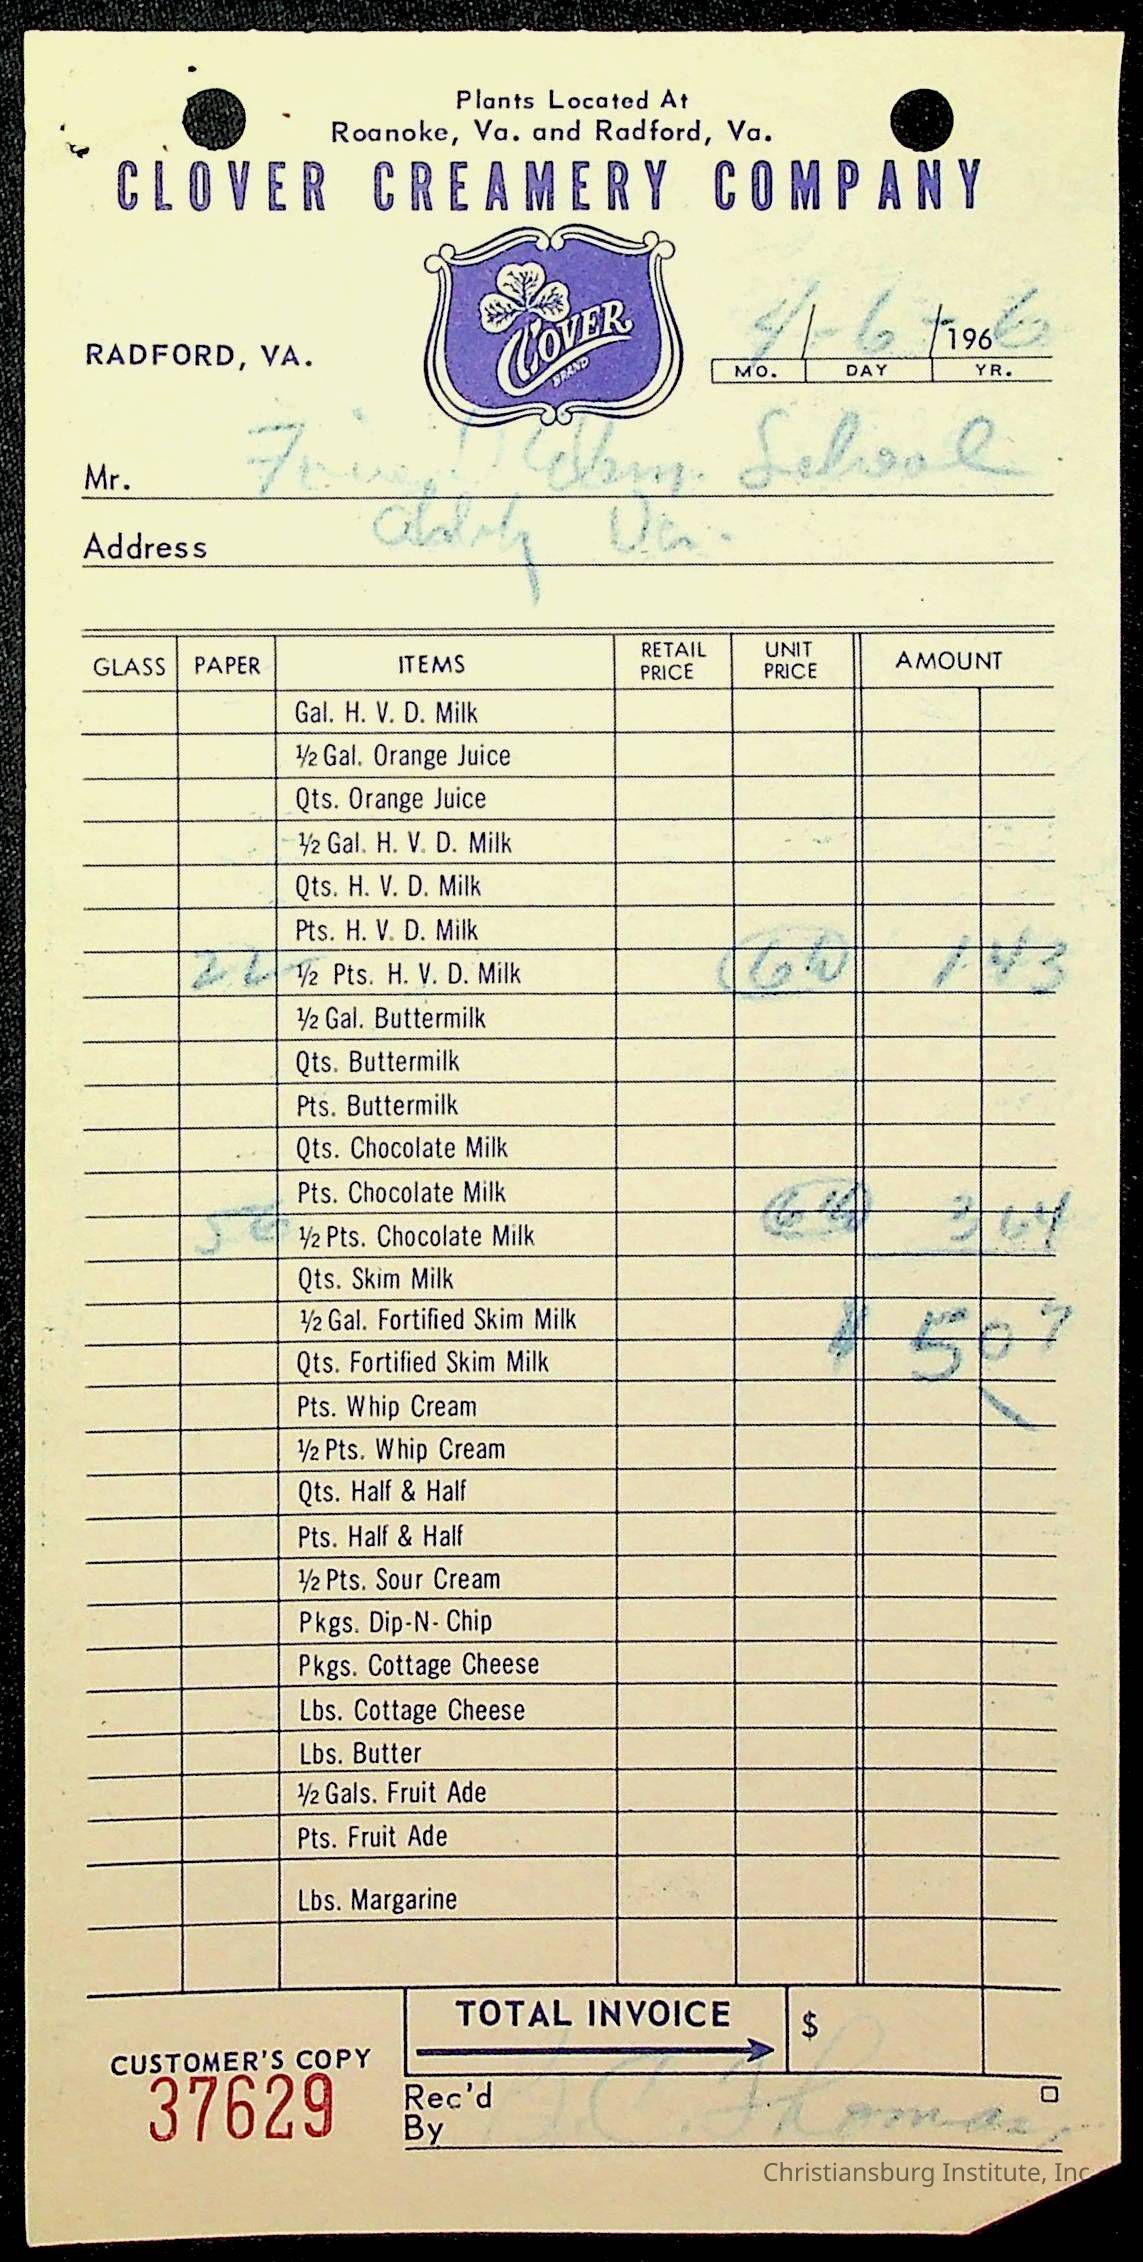 Plants Located At
Roanoke, Va. and Radford, Va.
CLOVER CREAMERY COMPANY
CLOVER
BRAND
RADFORD, VA.
4 - 6 - 1966
MO. DAY YR.
Mr. Elem. School
Address Va.
GLASS PAPER ITEMS RETAIL PRICE UNIT PRICE AMOUNT
Gal. H. V. D. Milk
½ Gal. Orange Juice
Qts. Orange Juice
½ Gal. H. V. D. Milk
Qts. H. V. D. Milk
Pts. H. V. D. Milk
22 ½ Pts. H. V. D. Milk 1 43
½ Gal. Buttermilk
Qts. Buttermilk
Pts. Buttermilk
Qts. Chocolate Milk
Pts. Chocolate Milk
56 ½ Pts. Chocolate Milk 3 64
Qts. Skim Milk
½ Gal. Fortified Skim Milk $ 5 07
Qts. Fortified Skim Milk
Pts. Whip Cream
½ Pts. Whip Cream
Qts. Half & Half
Pts. Half & Half
½ Pts. Sour Cream
Pkgs. Dip-N-Chip
Pkgs. Cottage Cheese
Lbs. Cottage Cheese
Lbs. Butter
½ Gals. Fruit Ade
Pts. Fruit Ade
Lbs. Margarine
TOTAL INVOICE $
CUSTOMER'S COPY
37629
Rec'd By Thomas
Christiansburg Institute, Inc.